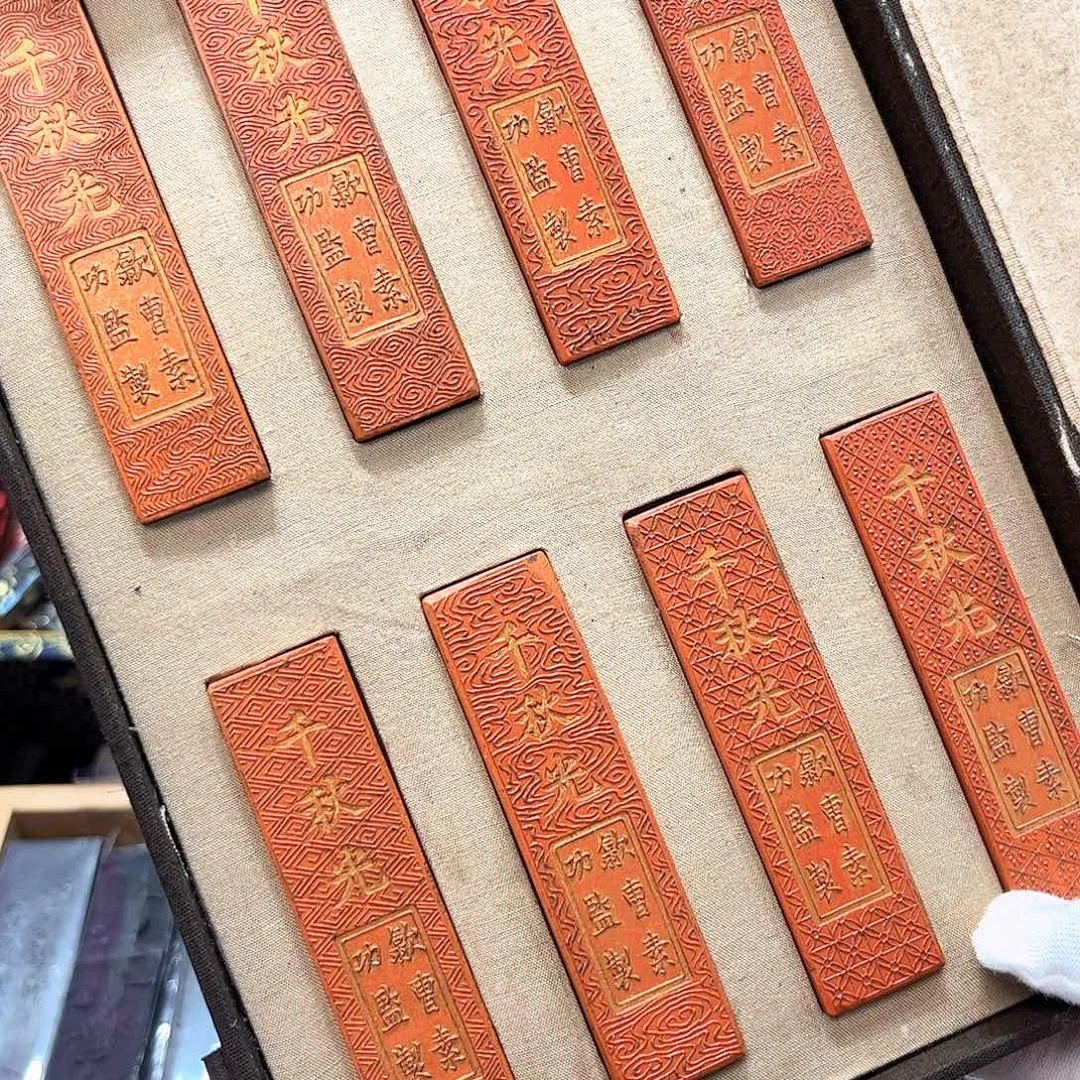 千秋光
歙曹素
功監製
千秋光
歙曹素
功監製
秋光
歙曹素
功監製
歙曹素
功監製
千秋光
歙曹素
功監製
千秋光
歙曹素
功監製
千秋光
歙曹素
功監製
千秋光
歙曹素
功監製